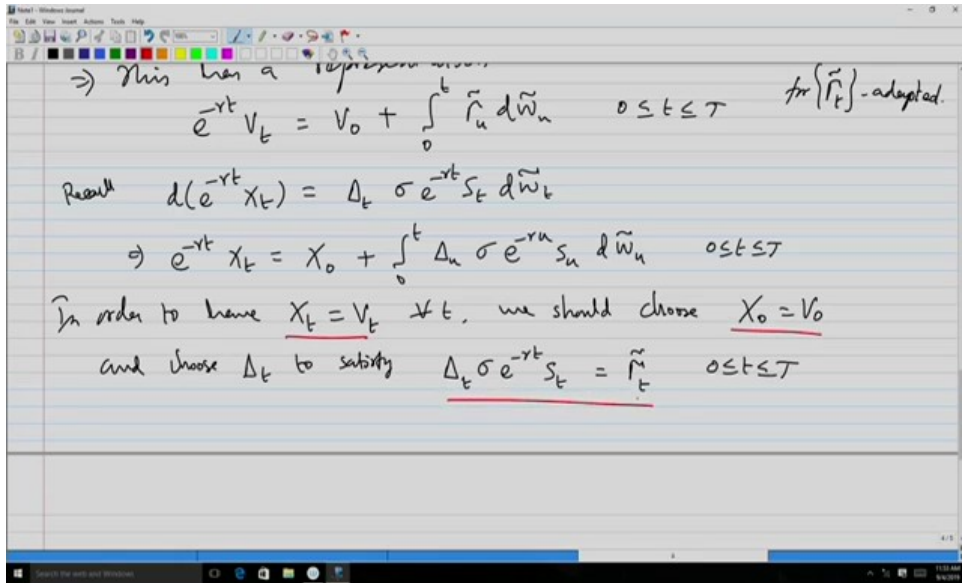 Note1 - Windows Journal
File Edit View Insert Actions Tools Help
⇒ This has a
e^{-rt} V_t = V_0 + ∫_0^t Γ̃_u dW̃_u 0 ≤ t ≤ T for {Γ̃_t}-adapted.
Recall d(e^{-rt} X_t) = Δ_t σ e^{-rt} S_t dW̃_t
⇒ e^{-rt} X_t = X_0 + ∫_0^t Δ_u σ e^{-ru} S_u dW̃_u 0≤t≤T
In order to have X_t = V_t ∀ t, we should choose X_0 = V_0
and choose Δ_t to satisfy Δ_t σ e^{-rt} S_t = Γ̃_t 0≤t≤T
4/5
Search the web and Windows
11:53 AM